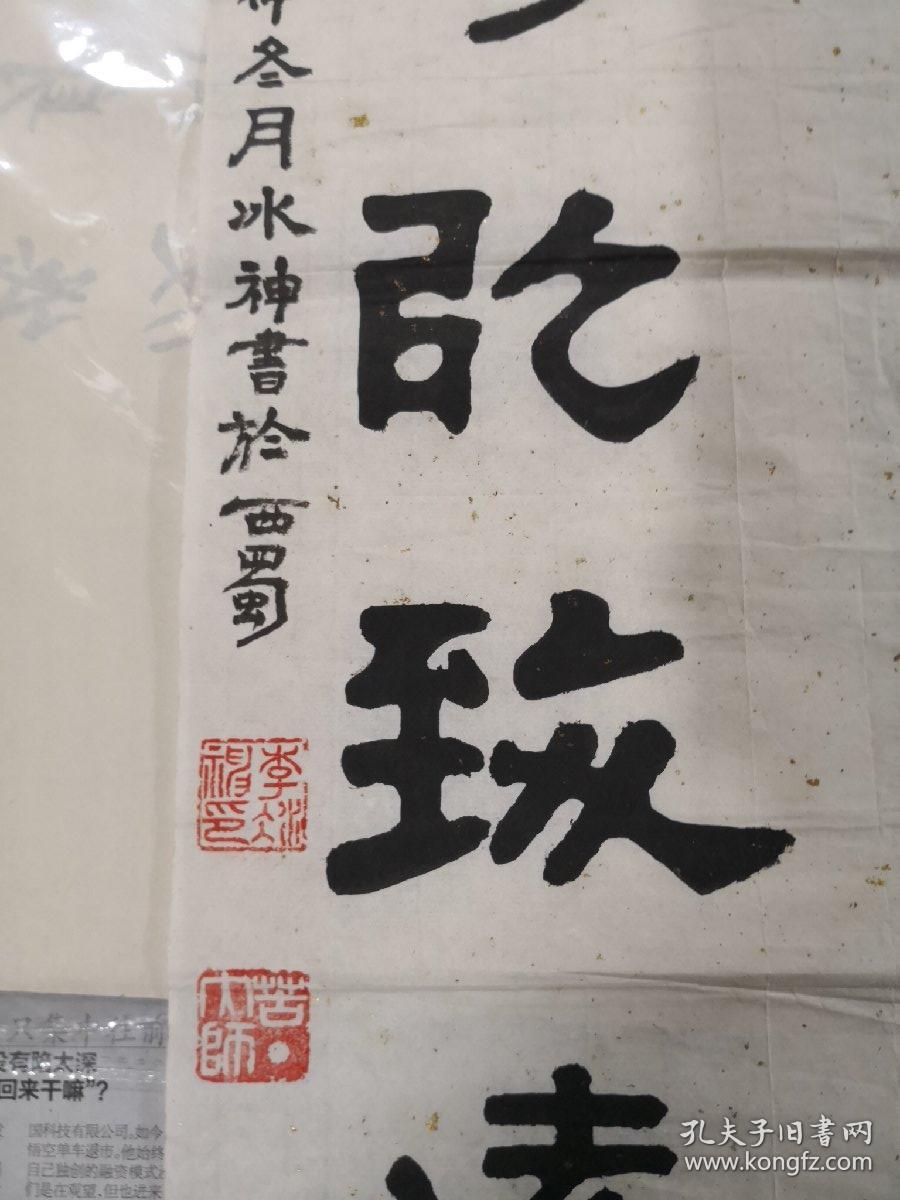 以致
冬月冰神書於西蜀
李冰神印
苦大師
有陷太深
回来干嘛”?
国科技有限公司。如今
悟空单车退市。他始终
自己独创的融资模式
们是在观望,但也进来
孔夫子旧书网
www.kongfz.com